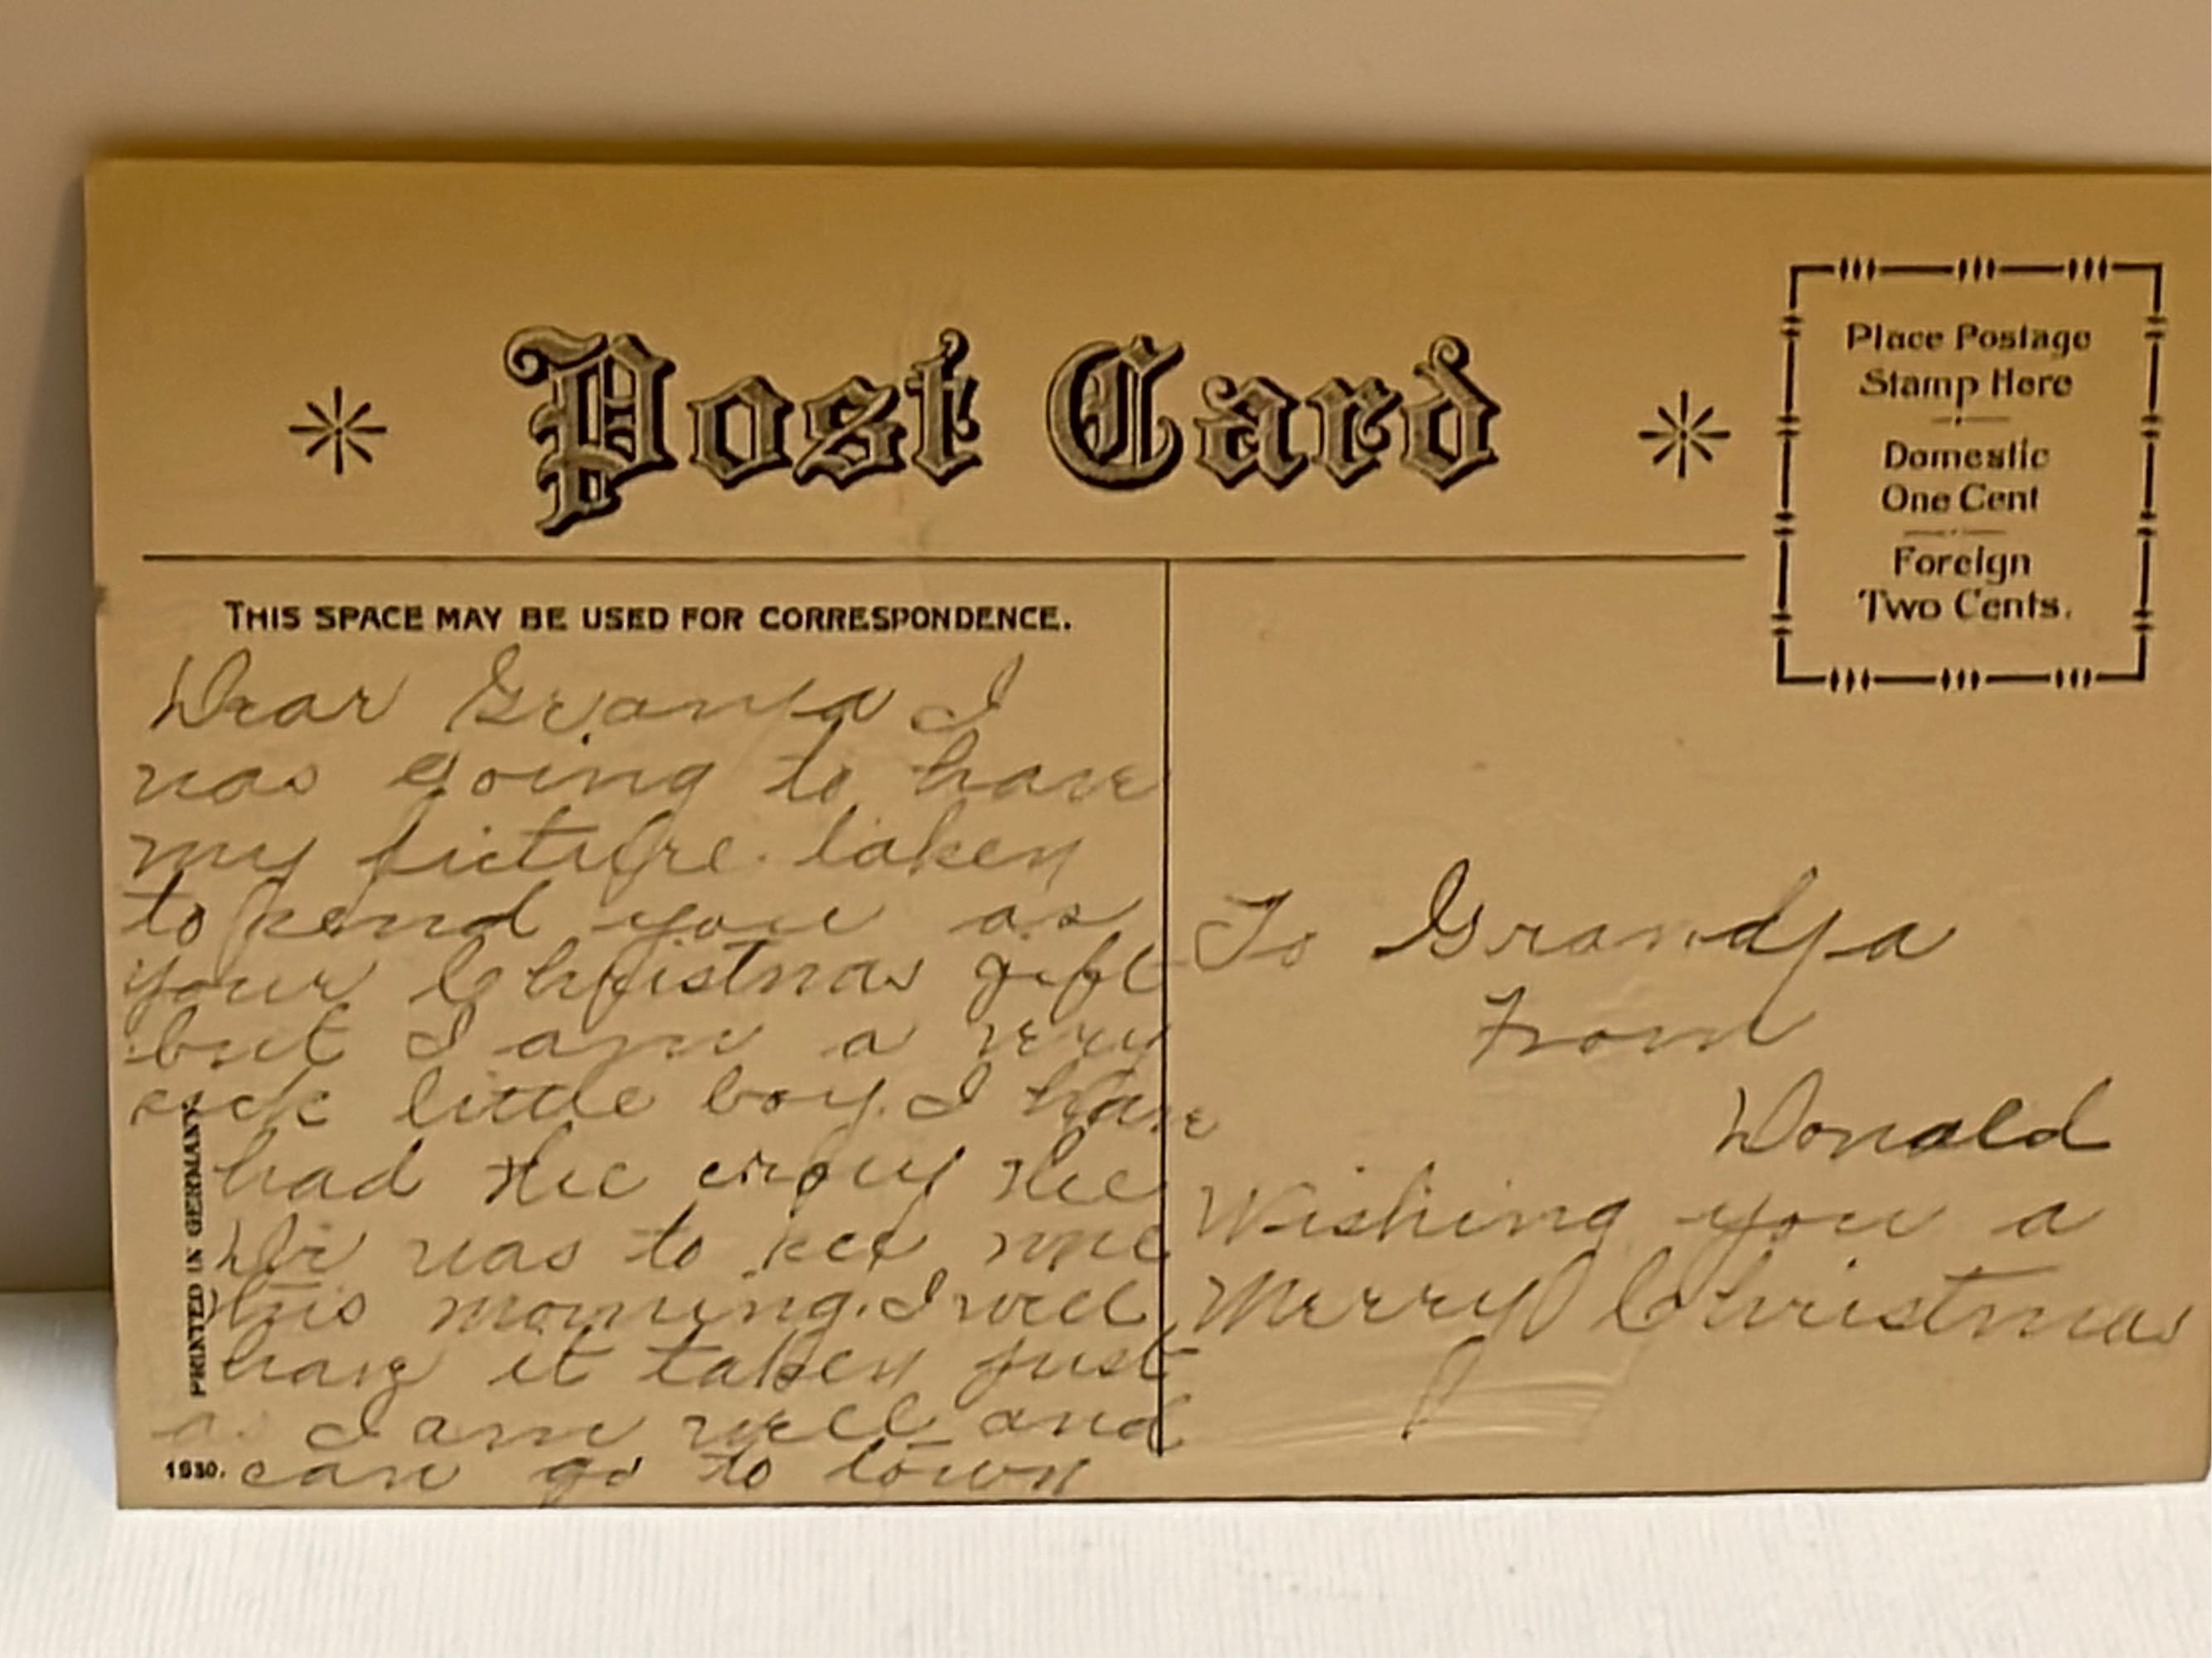 Post Card
Place Postage
Stamp Here
Domestic
One Cent
Foreign
Two Cents.
THIS SPACE MAY BE USED FOR CORRESPONDENCE.
Dear Granpa I
was going to have
my picture taken
to send you as
your Christmas gift
but I am a very
sick little boy. I have
had the croup the
Dr was to see me
this morning. I will
have it taken just
as I am well and
can go to town
To Grandpa
From
Donald
Wishing you a
Merry Christmas
PRINTED IN GERMANY.
1930.